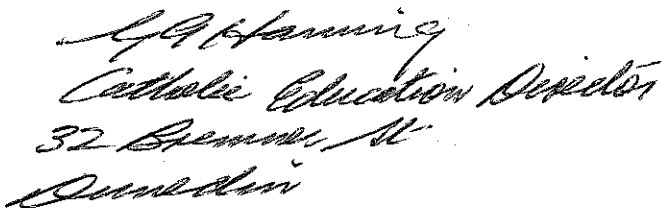 G A Hanning
Catholic Education Director
32 Bremner St.
Dunedin